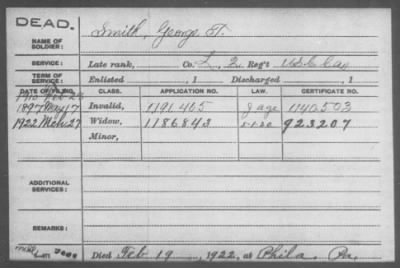 DEAD.
NAME OF SOLDIER: Smith, George T.
SERVICE: Late rank, Co. L, 2 Reg't U.S.C. Cav
TERM OF SERVICE: Enlisted , 1 Discharged , 1
DATE OF FILING. CLASS. APPLICATION NO. LAW. CERTIFICATE NO.
1897 May 17 Invalid, 1191465 age 1140503
1922 Mch 27 Widow, 1186843 5-1-20 923207
Minor,
ADDITIONAL SERVICES:
REMARKS:
Died Feb 19, 1922, at Phila. Pa.